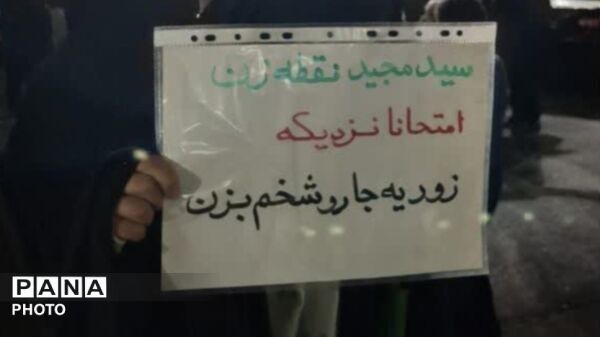 سید مجید نقطه زن
امتحانا نزدیکه
زود یه جا رو شخم بزن
PANA
PHOTO